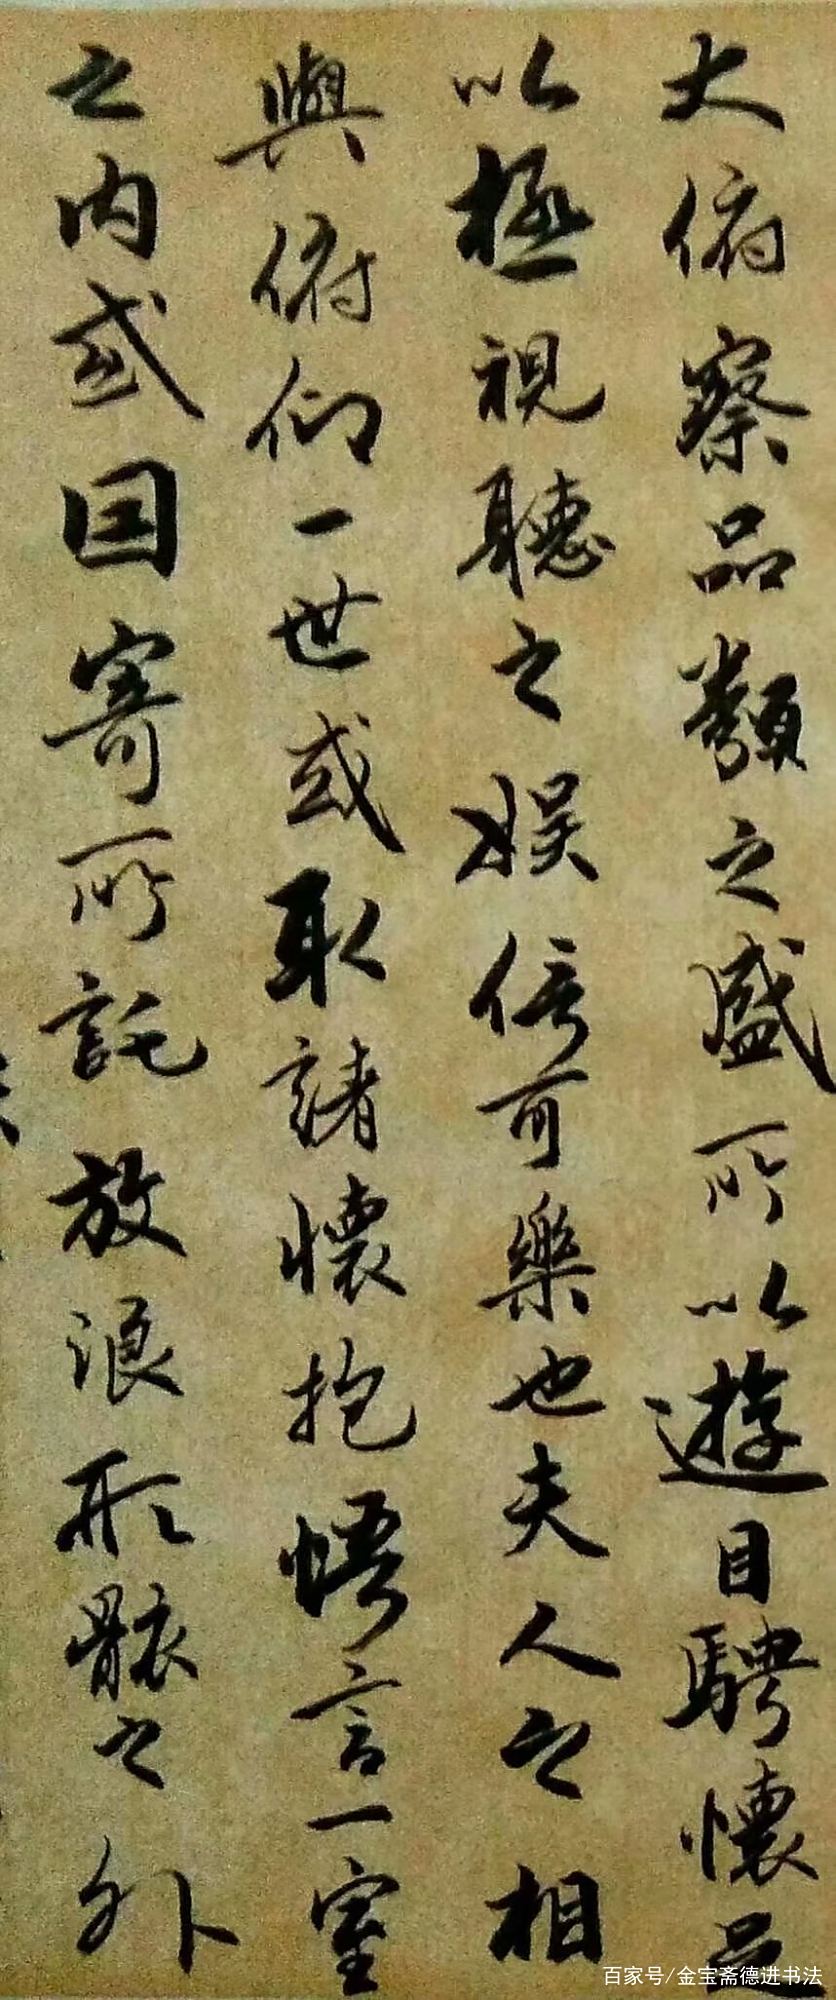 大俯察品類之盛所以遊目騁懷足
以極視聽之娱信可樂也夫人之相
與俯仰一世或取諸懷抱悟言一室
之内或因寄所託放浪形骸之外
百家号/金宝斋德进书法